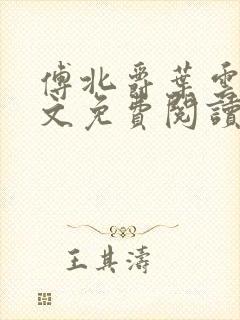 傅北爵葉雲
文免費閱讀
王其濤